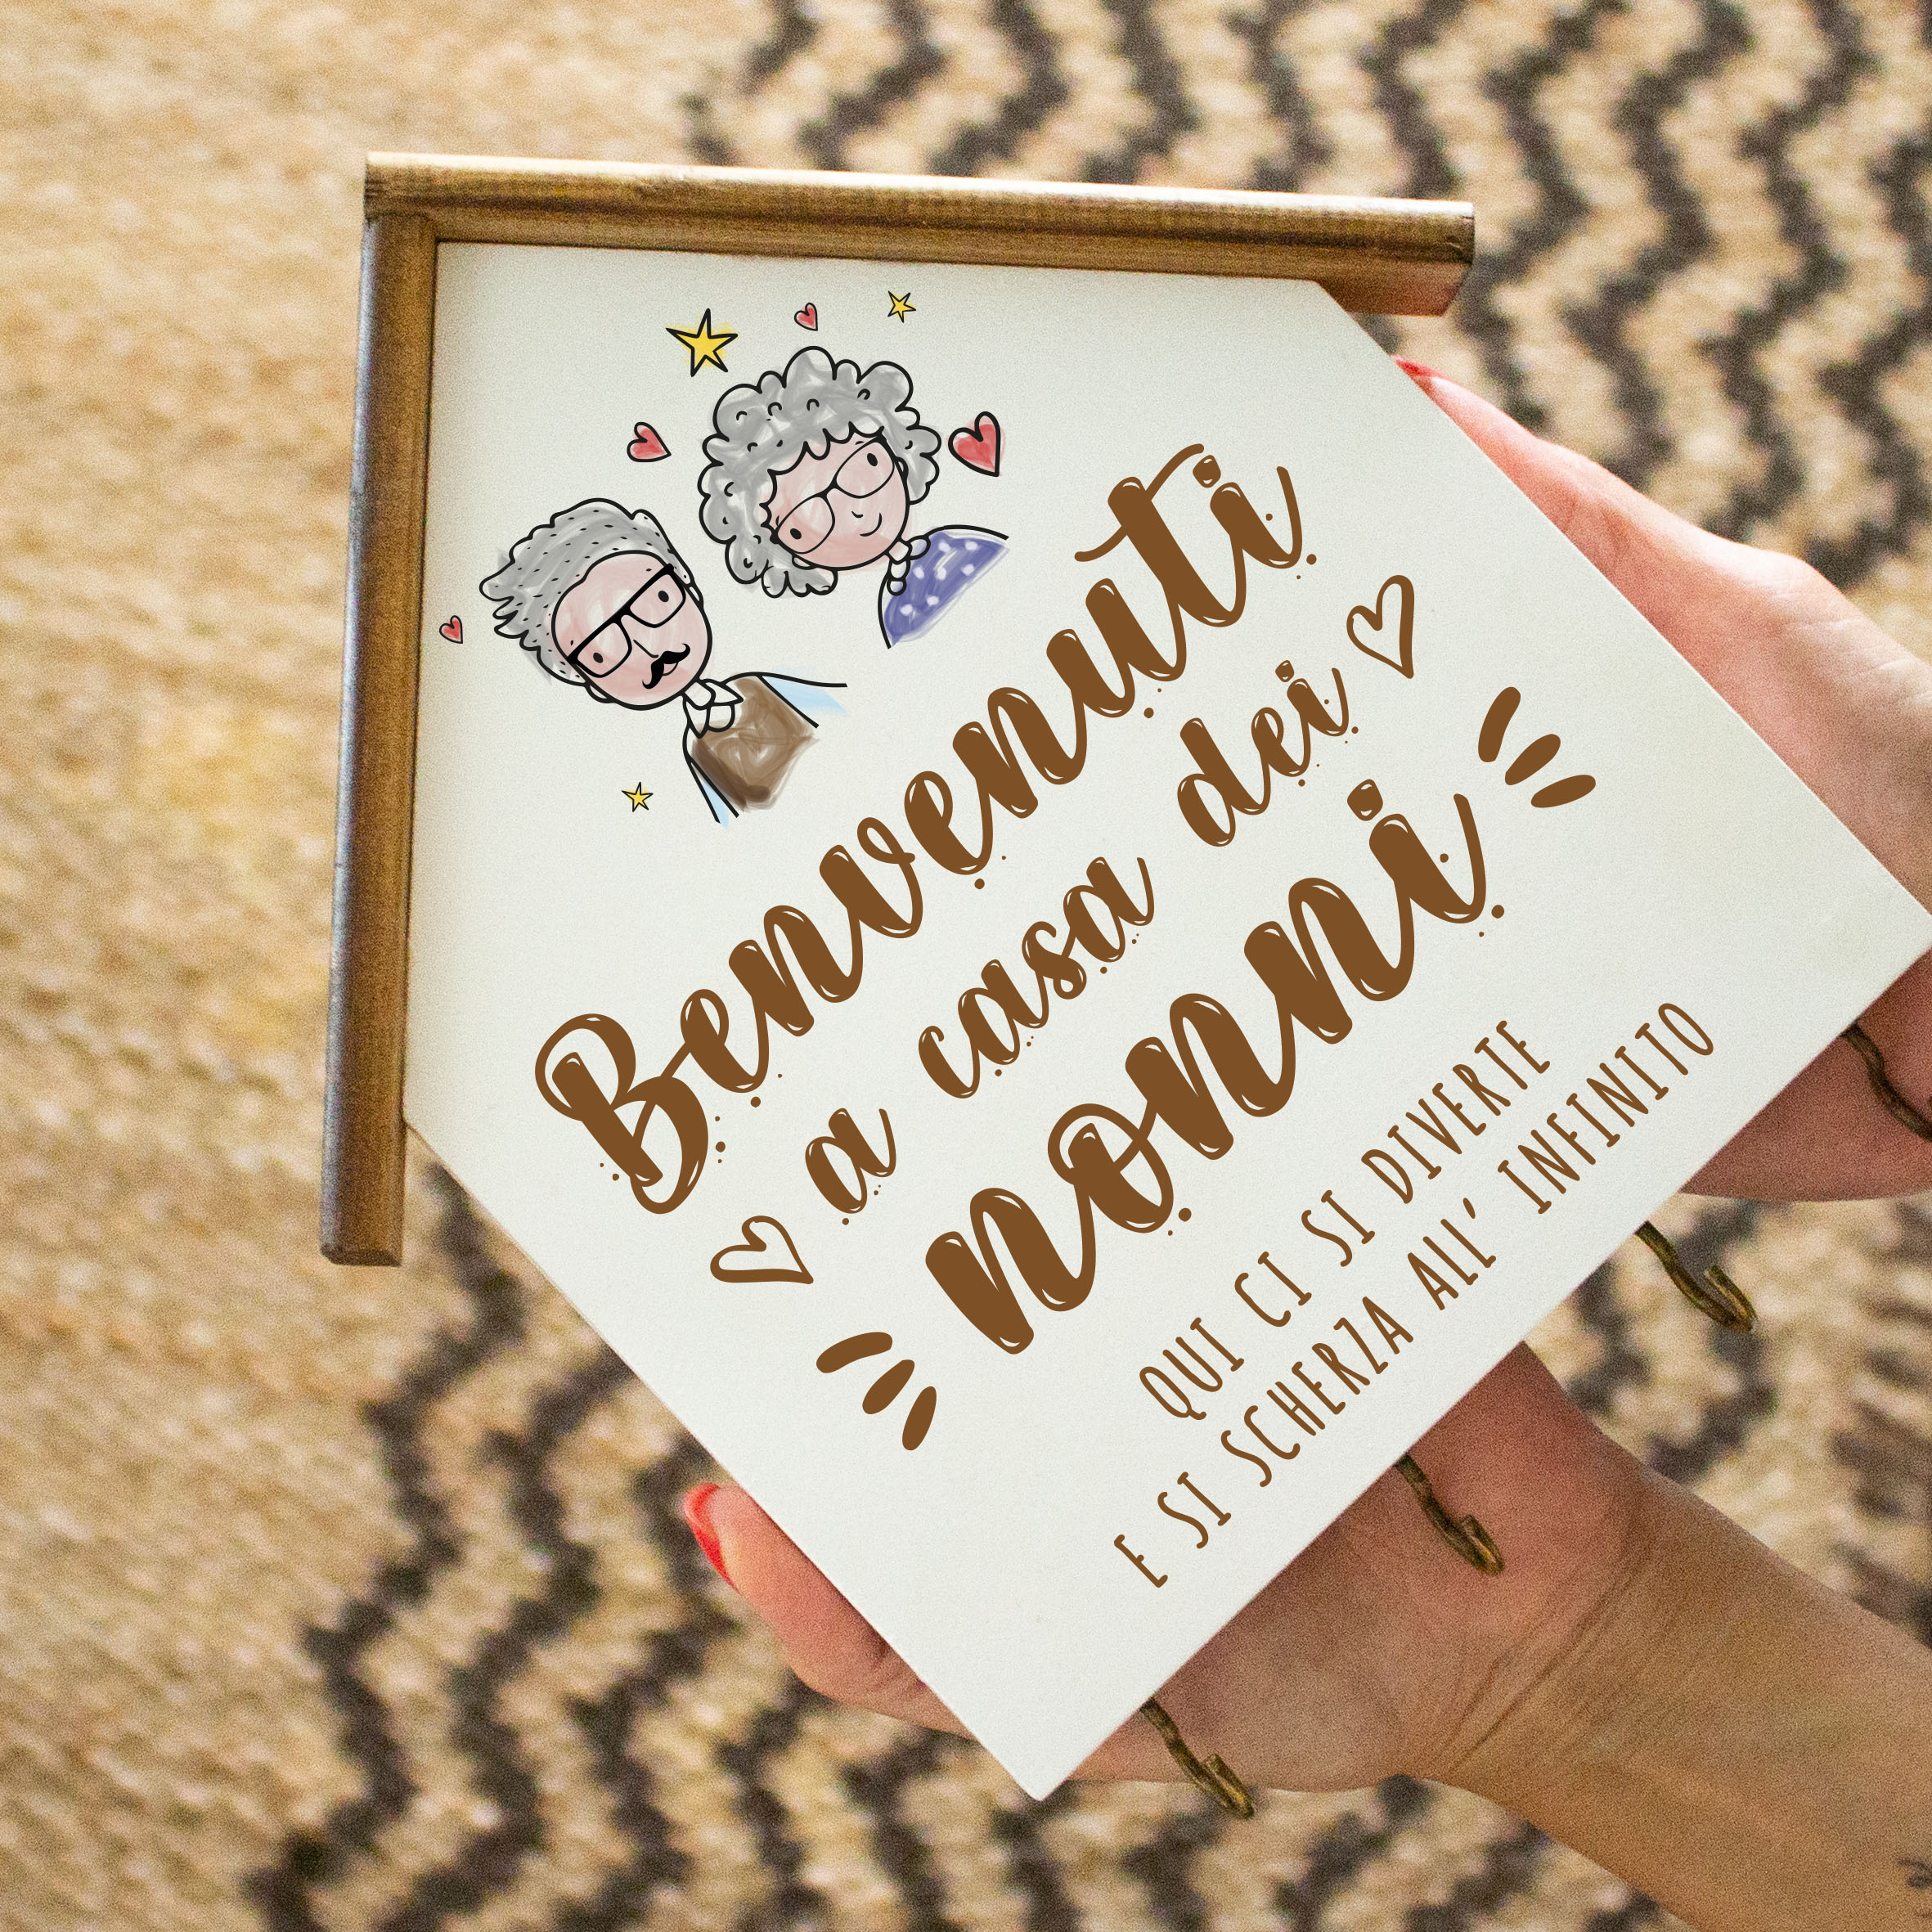 Benvenuti
a casa dei
nonni
QUI CI SI DIVERTE
E SI SCHERZA ALL' INFINITO